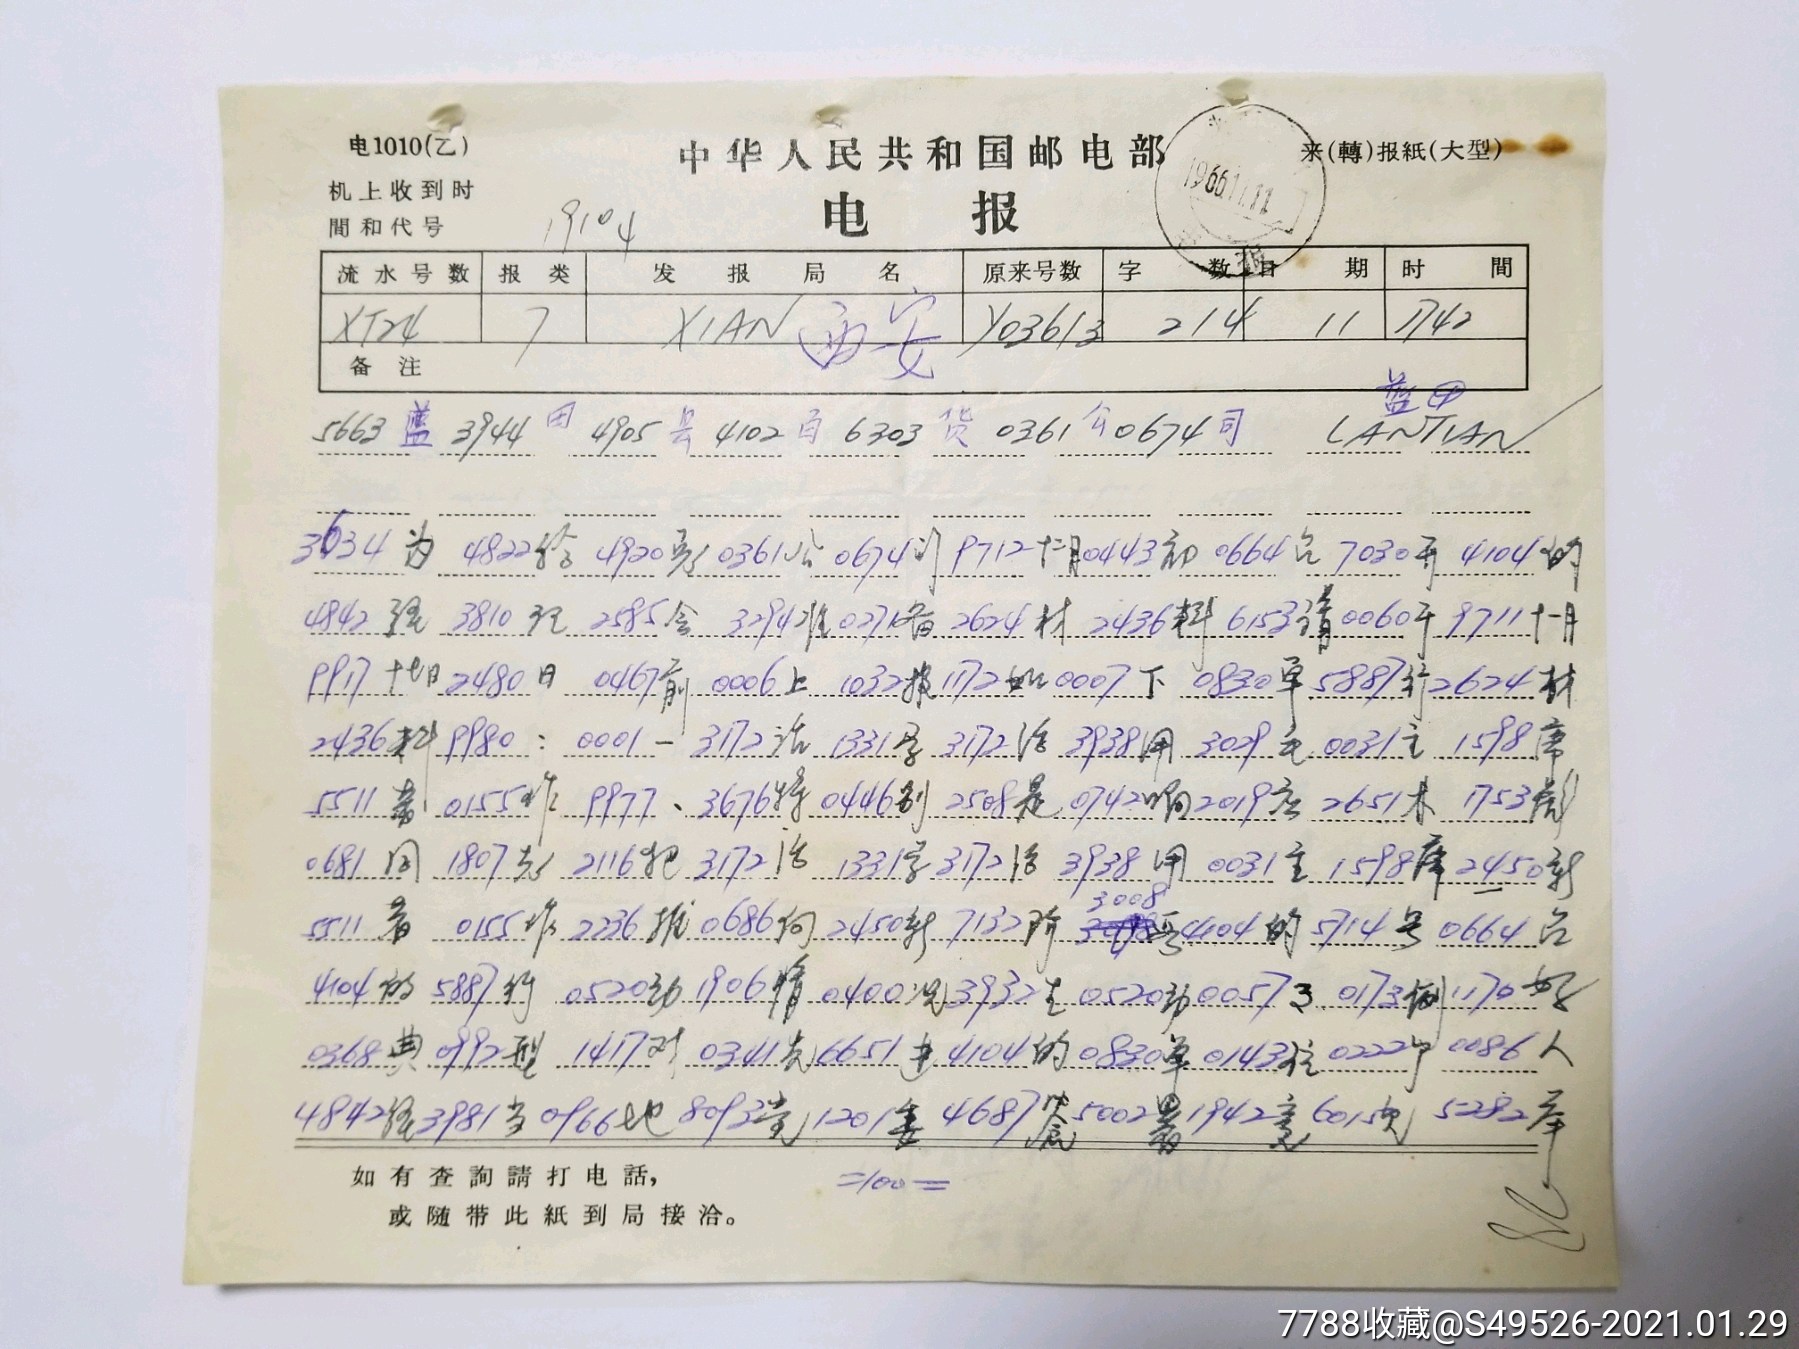 电1010(乙)
中华人民共和国邮电部
来(轉)报紙(大型)
机上收到时
間和代号
19104
电 报
1966.11.11
流水号数 报类 发报局名 原来号数 字数 日期 时間
XT24 7 XIAN 西安 Y03613 214 11 1742
备注
蓝田
5663 蓝 3944 田 4905 县 4102 百 6303 货 0361 公 0674 司 LANTIAN
3634 为 4822 给 4920 0361 公 0674 司 9712 十二月 0443 初 0664 召 7030 开 4104 的
4842 经 3810 理 2585 会 3294 准 0271 备 2624 材 2436 料 6153 请 0060 于 9711 十一月
9917 十七日 2480 日 0467 前 0006 上 1032 报 1172 如 0007 下 0830 单 5887 行 2624 材
2436 料 9980 : 0001 一 3172 活 1331 学 3172 活 3938 用 3029 毛 0031 主 1598 席
5511 著 0155 作 9977 、 3676 特 0446 别 2508 是 0742 响 2019 应 2651 林 1753 彪
0681 同 1807 志 2116 把 3172 活 1331 学 3172 活 3938 用 0031 主 1598 席 2450 新
3008
5511 著 0155 作 2236 推 0686 向 2450 新 7132 阶 段 4104 的 5714 号 0664 召
4104 的 5887 行 0520 动 1906 情 0400 况 3932 生 0520 动 0057 事 0173 例 1170 好
0368 典 0992 型 1417 对 0341 先 6651 进 4104 的 0830 单 0143 位 0222 个 0086 人
4842 经 3981 当 0966 地 8093 党 1201 委 4687 签 5002 署 1942 意 6015 见 5282
如有查詢請打电話,
=100=
或随带此紙到局接洽。
7788收藏@S49526-2021.01.29